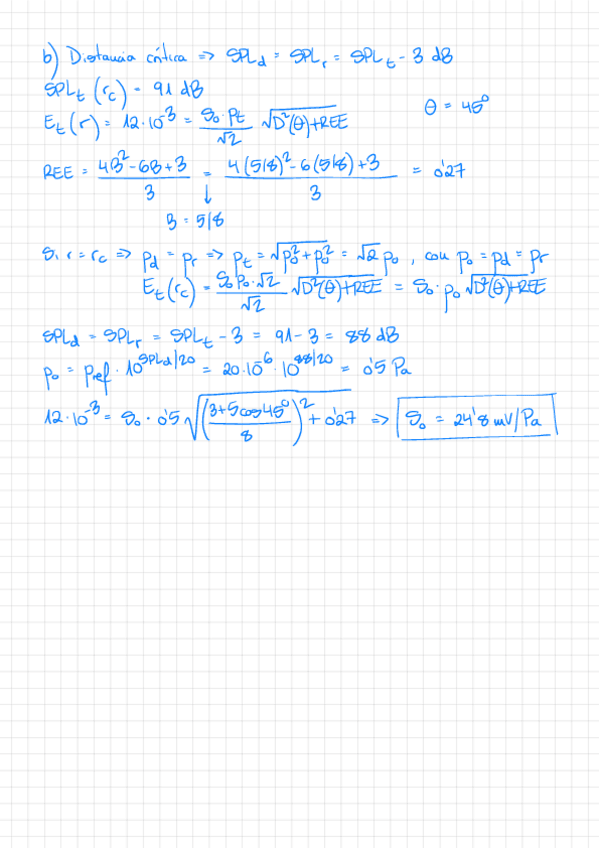 b) Distancia crítica => SPL_d = SPL_r = SPL_t - 3 dB
SPL_t (r_c) = 91 dB
θ = 45°
E_t(r) = 12·10^-3 = S_o·P_t/√2 √(D²(θ)+REE)
REE = (4B²-6B+3)/3 = (4(5/8)²-6(5/8)+3)/3 = 0'27
↓
B = 5/8
Si r = r_c => p_d = p_r => p_t = √(p_o²+p_o²) = √2 p_o , con p_o = p_d = p_r
E_t(r_c) = S_o p_o·√2/√2 √(D²(θ)+REE) = S_o·p_o √(D²(θ)+REE)
SPL_d = SPL_r = SPL_t - 3 = 91-3 = 88 dB
p_o = p_ref · 10^(SPL_d/20) = 20·10^-6 · 10^(88/20) = 0'5 Pa
12·10^-3 = S_o · 0'5 √(((3+5cos45°)/8)² + 0'27) => S_o = 24'8 mV/Pa